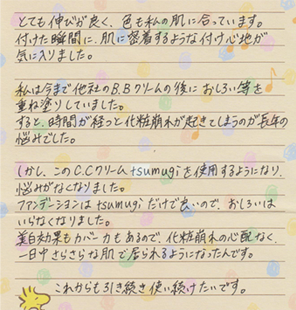 とても伸びが良く、色も私の肌に合っています。
付けた瞬間に、肌に密着するような付け心地が
気に入りました。
私は今まで他社のB.Bクリームの後におしろい等を
重ね塗りしていました。
すると、時間が経つと化粧崩れが起きてしまうのが長年の
悩みでした。
しかし、このC.Cクリームtsumugiを使用するようになり、
悩みがなくなりました。
ファンデーションはtsumugiだけで良いので、おしろいは
いらなくなりました。
美白効果もカバー力もあるので、化粧崩れの心配なく、
一日中さらさらな肌で居られるようになったんです。
これからも引き続き使い続けたいです。